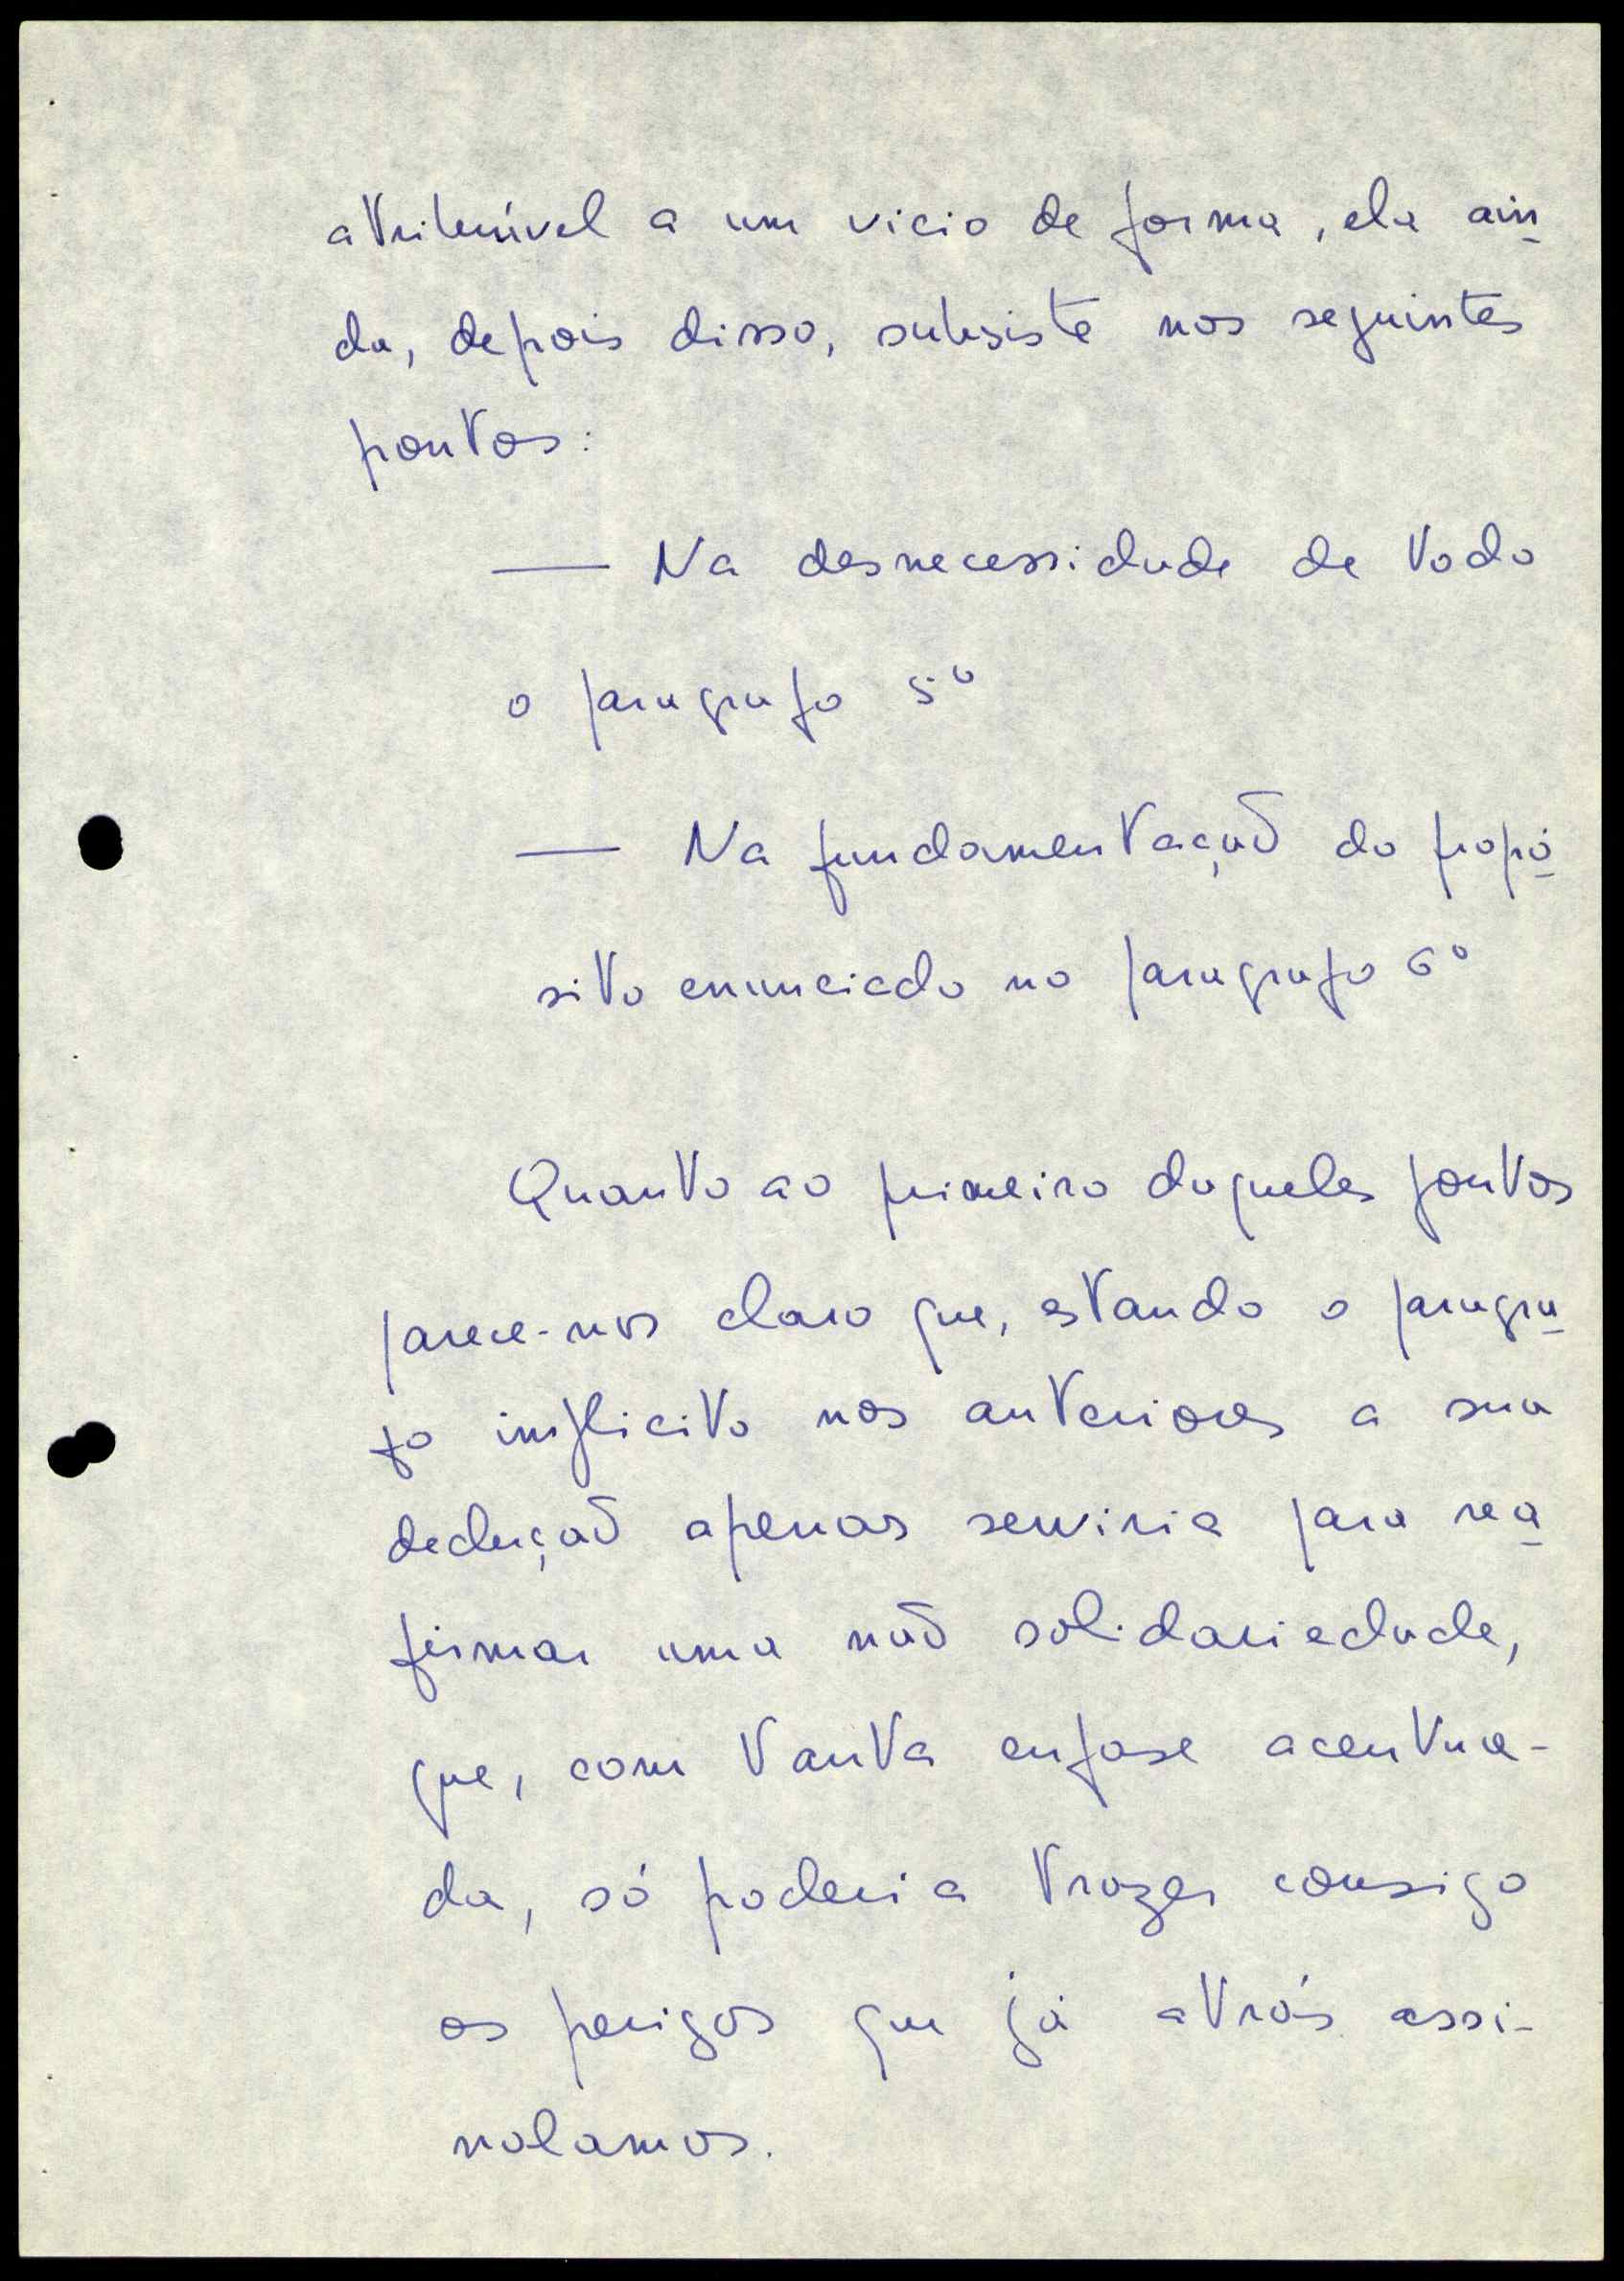 atribuível a um vicio de forma, ela ain
da, depois disso, subsiste nos seguintes
pontos:
— Na desnecessidade de todo
o paragrafo 5º
— Na fundamentação do propó
sito enunciado no paragrafo 6º
Quanto ao primeiro daqueles pontos
parece-nos claro que, estando o paragra
fo implicito nos anteriores a sua
dedução apenas serviria para rea
firmar uma não solidariedade,
que, com tanta enfase acentua-
da, só poderia trazer consigo
os perigos que já atrás assi-
nalamos.